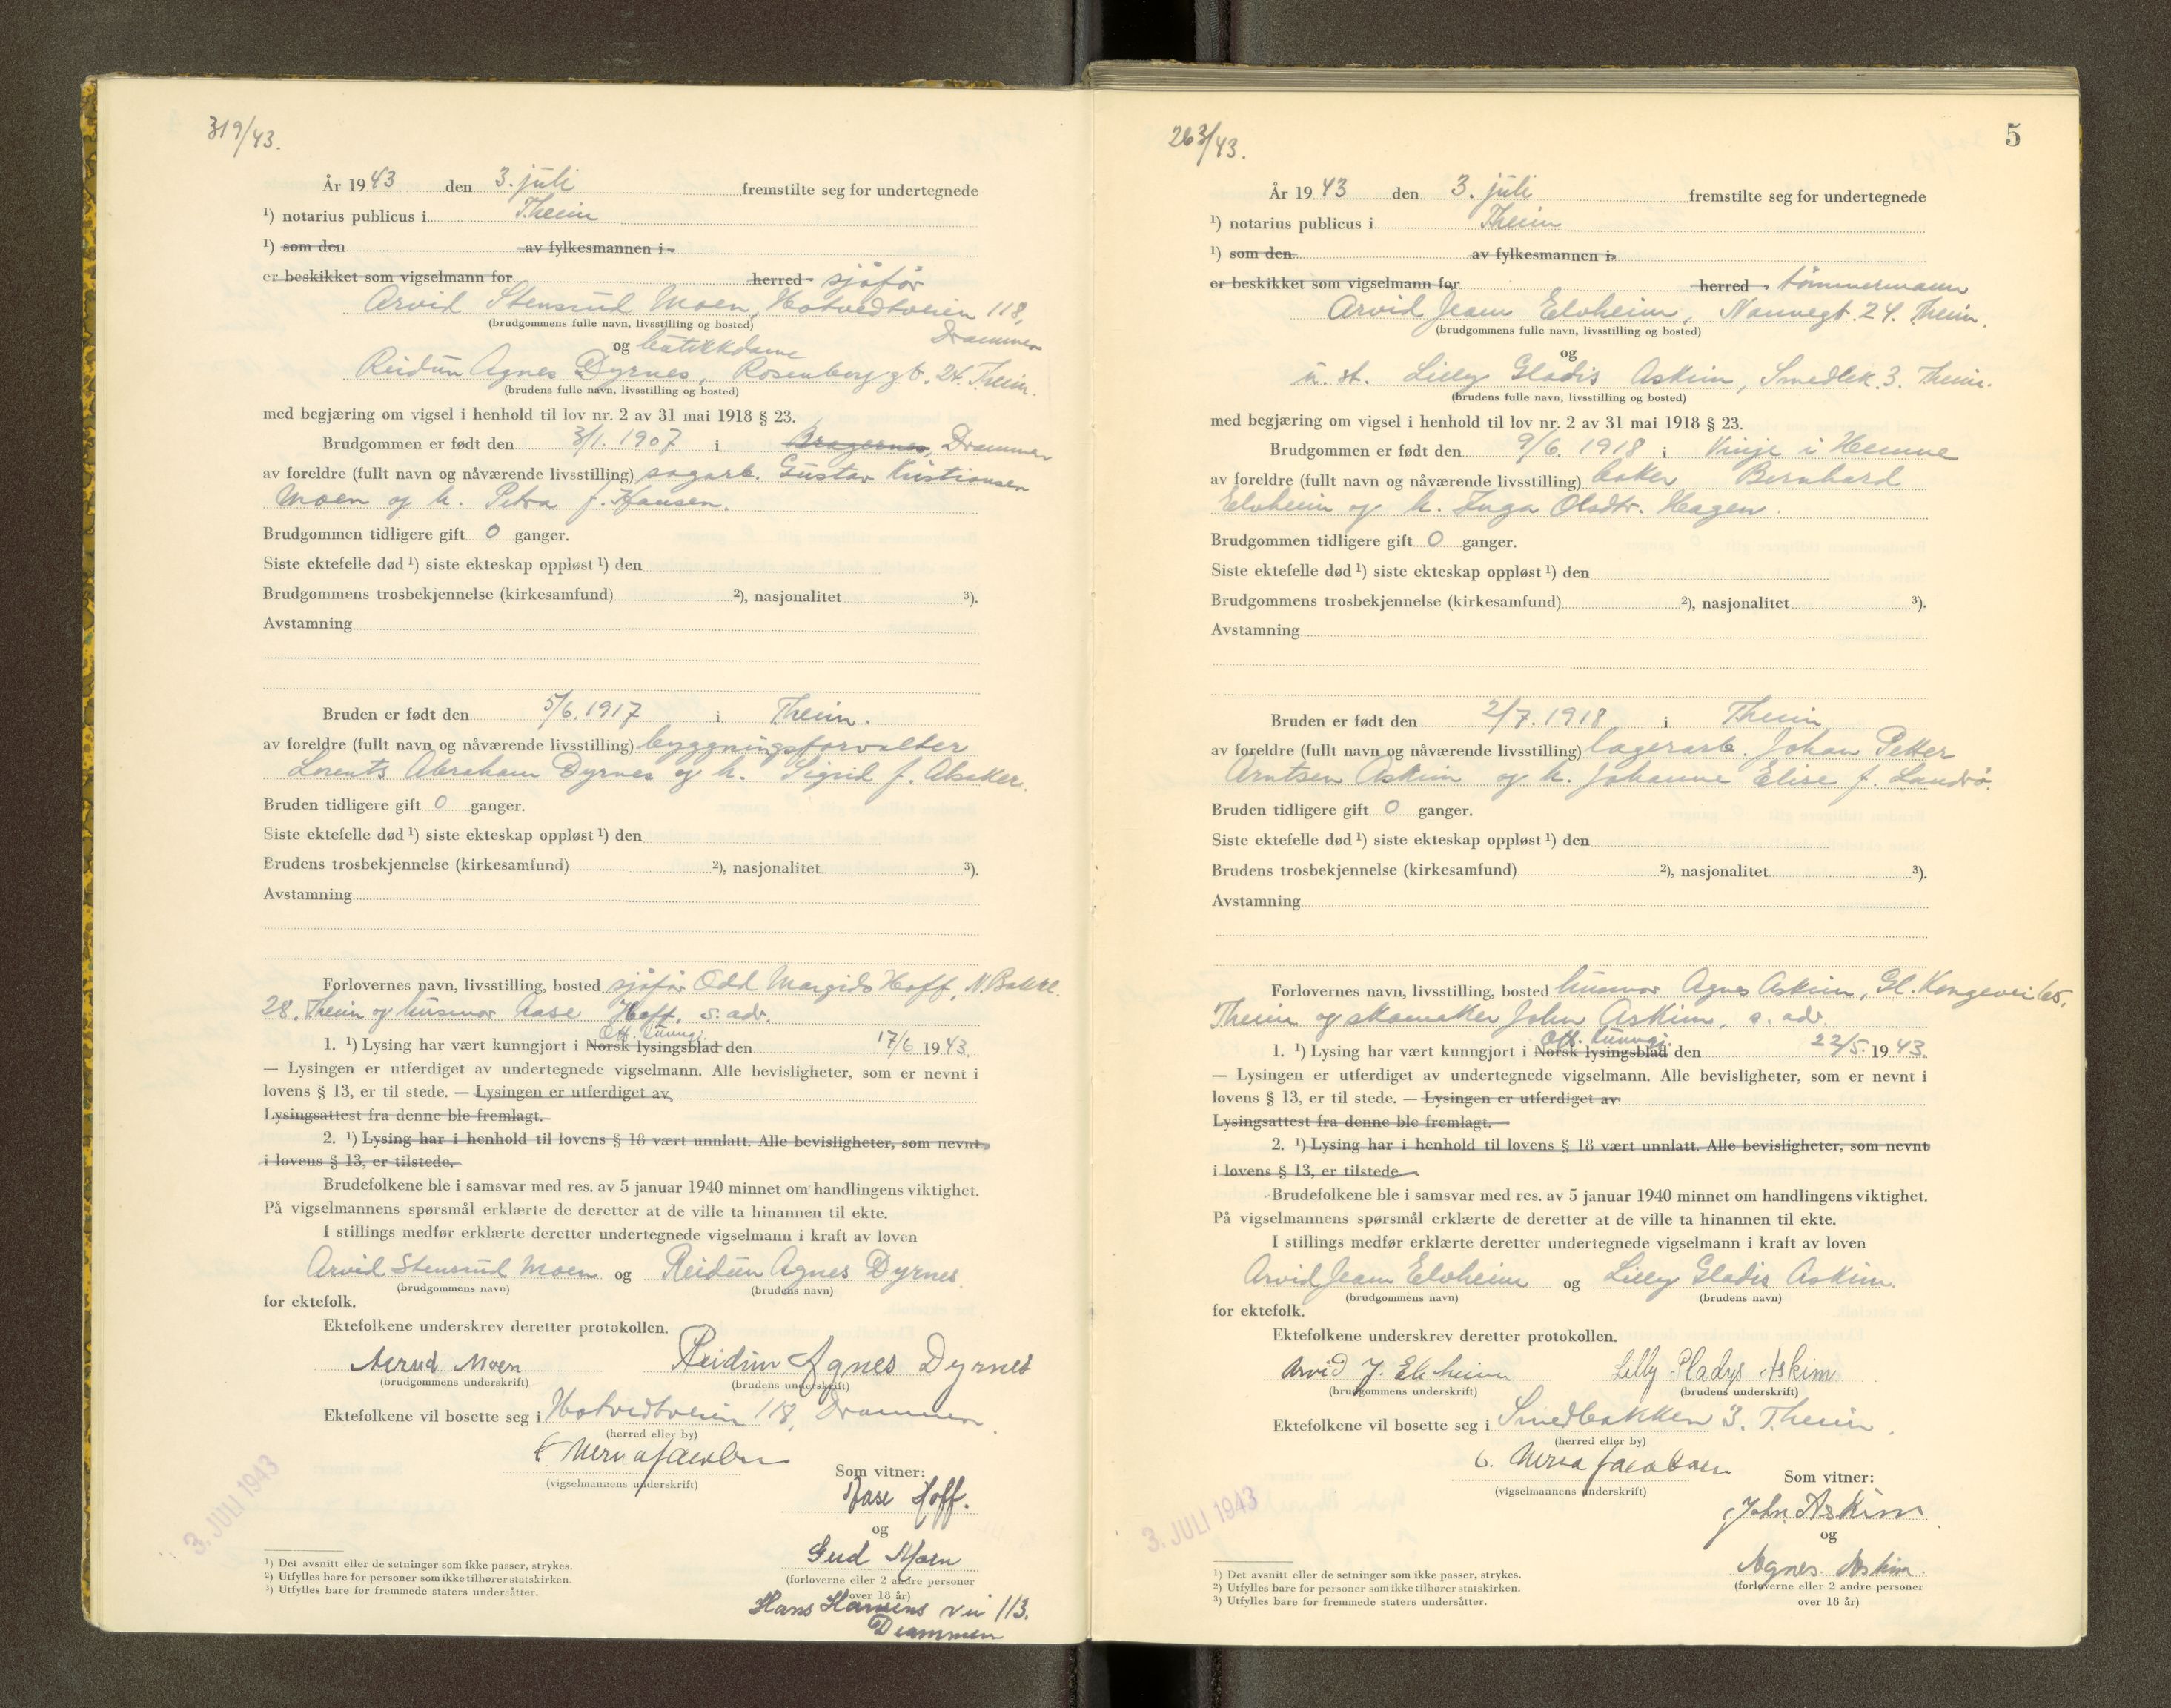 319/43.
År 1943 den 3. juli fremstilte seg for undertegnede
¹) notarius publicus i Theim
¹) som den av fylkesmannen i
er beskikket som vigselmann for herred sjåfør
Arvid Stensrud Moen, Hotvedtveien 118,
(brudgommens fulle navn, livsstilling og bosted)
Drammen
og butikkdame
Reidun Agnes Dyrnes, Rosenborggt. 24. Theim.
(brudens fulle navn, livsstilling og bosted)
med begjæring om vigsel i henhold til lov nr. 2 av 31 mai 1918 § 23.
Brudgommen er født den 3/1. 1907 i Bragernes, Drammen
av foreldre (fullt navn og nåværende livsstilling) sagarb. Gustav Kristiansen
Moen og h. Petra f. Hansen.
Brudgommen tidligere gift 0 ganger.
Siste ektefelle død ¹) siste ekteskap oppløst ¹) den
Brudgommens trosbekjennelse (kirkesamfund) ²), nasjonalitet ³).
Avstamning
Bruden er født den 5/6. 1917 i Theim.
av foreldre (fullt navn og nåværende livsstilling) byggningsforvalter
Lorents Abraham Dyrnes og h. Sigrid f. Alsaker.
Bruden tidligere gift 0 ganger.
Siste ektefelle død ¹) siste ekteskap oppløst ¹) den
Brudens trosbekjennelse (kirkesamfund) ²), nasjonalitet ³).
Avstamning
Forlovernes navn, livsstilling, bosted sjåfør Odd Margido Hoff, N. Bakkl.
28. Theim og husmor Aase Hoff, s. adr.
Off. kunngj.
1. ¹) Lysing har vært kunngjort i Norsk lysingsblad den 17/6 1943.
— Lysingen er utferdiget av undertegnede vigselmann. Alle bevisligheter, som er nevnt i
lovens § 13, er til stede. — Lysingen er utferdiget av
Lysingsattest fra denne ble fremlagt.
2. ¹) Lysing har i henhold til lovens § 18 vært unnlatt. Alle bevisligheter, som nevnt
i lovens § 13, er tilstede.
Brudefolkene ble i samsvar med res. av 5 januar 1940 minnet om handlingens viktighet.
På vigselmannens spørsmål erklærte de deretter at de ville ta hinannen til ekte.
I stillings medfør erklærte deretter undertegnede vigselmann i kraft av loven
Arvid Stensrud Moen og Reidun Agnes Dyrnes.
(brudgommens navn) (brudens navn)
for ektefolk.
Ektefolkene underskrev deretter protokollen.
Arvid Moen Reidun Agnes Dyrnes
(brudgommens underskrift) (brudens underskrift)
Ektefolkene vil bosette seg i Hotvedtveien 118, Drammen.
(herred eller by)
Jacobsen
(vigselmannens underskrift)
Som vitner:
Aase Hoff.
og
Gud Moen
(forloverne eller 2 andre personer
over 18 år)
Hans Hansens vei 113.
Drammen
3. JULI 1943
¹) Det avsnitt eller de setninger som ikke passer, strykes.
²) Utfylles bare for personer som ikke tilhører statskirken.
³) Utfylles bare for fremmede staters undersåtter.
5
263/43.
År 1943 den 3. juli fremstilte seg for undertegnede
¹) notarius publicus i Theim
¹) som den av fylkesmannen i
er beskikket som vigselmann for herred tømmermann
Arvid Jean Elvheim, Nannegt. 24. Theim.
(brudgommens fulle navn, livsstilling og bosted)
og
u. st. Lilly Gladis Askim, Smedbk. 3. Theim.
(brudens fulle navn, livsstilling og bosted)
med begjæring om vigsel i henhold til lov nr. 2 av 31 mai 1918 § 23.
Brudgommen er født den 9/6. 1918 i Vinje i Hemne
av foreldre (fullt navn og nåværende livsstilling) baker Bernhard
Elvheim og h. Inga Olsdtr. Hagen.
Brudgommen tidligere gift 0 ganger.
Siste ektefelle død ¹) siste ekteskap oppløst ¹) den
Brudgommens trosbekjennelse (kirkesamfund) ²), nasjonalitet ³).
Avstamning
Bruden er født den 2/7. 1918 i Theim
av foreldre (fullt navn og nåværende livsstilling) lagerarb. Johan Petter
Arntsen Askim og h. Johanne Elise f. Landrø.
Bruden tidligere gift 0 ganger.
Siste ektefelle død ¹) siste ekteskap oppløst ¹) den
Brudens trosbekjennelse (kirkesamfund) ²), nasjonalitet ³).
Avstamning
Forlovernes navn, livsstilling, bosted husmor Agnes Askim, Gl. Kongevei 65,
Theim og skomaker John Askim, s. adr.
Off. kunngj.
1. ¹) Lysing har vært kunngjort i Norsk lysingsblad den 22/5. 1943.
— Lysingen er utferdiget av undertegnede vigselmann. Alle bevisligheter, som er nevnt i
lovens § 13, er til stede. — Lysingen er utferdiget av
Lysingsattest fra denne ble fremlagt.
2. ¹) Lysing har i henhold til lovens § 18 vært unnlatt. Alle bevisligheter, som nevnt
i lovens § 13, er tilstede
Brudefolkene ble i samsvar med res. av 5 januar 1940 minnet om handlingens viktighet.
På vigselmannens spørsmål erklærte de deretter at de ville ta hinannen til ekte.
I stillings medfør erklærte deretter undertegnede vigselmann i kraft av loven
Arvid Jean Elvheim og Lilly Gladis Askim.
(brudgommens navn) (brudens navn)
for ektefolk.
Ektefolkene underskrev deretter protokollen.
Arvid J. Elvheim Lilly Gladys Askim
(brudgommens underskrift) (brudens underskrift)
Ektefolkene vil bosette seg i Smedbakken 3. Theim.
(herred eller by)
Jacobsen
(vigselmannens underskrift)
Som vitner:
John Askim
og
Agnes Askim.
(forloverne eller 2 andre personer
over 18 år)
3. JULI 1943
¹) Det avsnitt eller de setninger som ikke passer, strykes.
²) Utfylles bare for personer som ikke tilhører statskirken.
³) Utfylles bare for fremmede staters undersåtter.